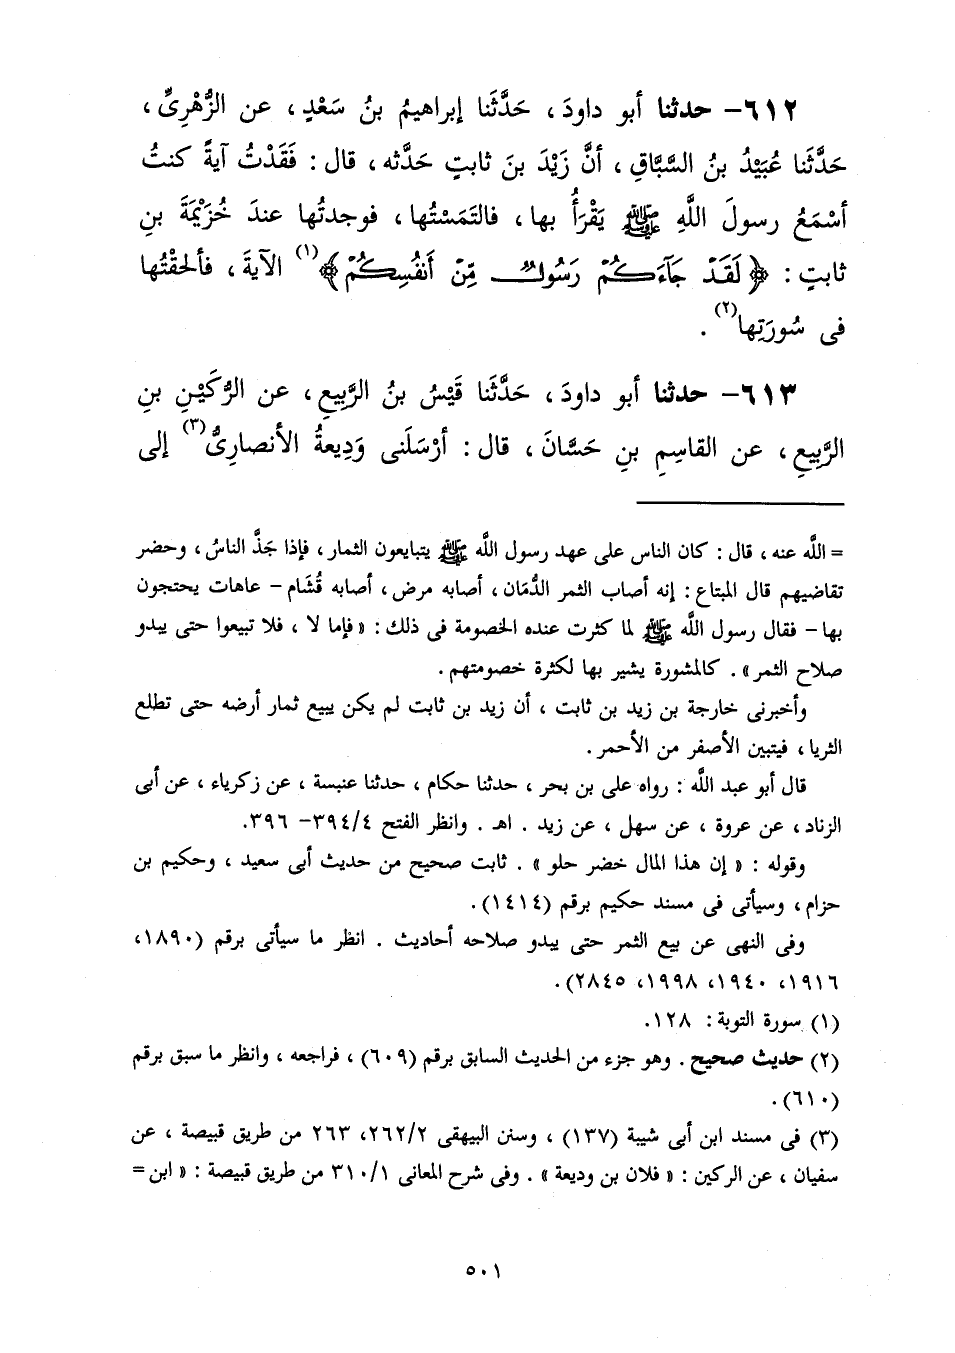 ٦١٢- حدثنا أبو داودَ ، حَدَّثَنا إبراهيمُ بنُ سَعْدٍ ، عن الزُّهْرِىِّ ،
حَدَّثَنا عُبَيْدُ بنُ السَّبَّاقِ ، أنَّ زَيْدَ بنَ ثابتٍ حَدَّثه ، قال : فَقَدْتُ آيةً كنتُ
أسْمَعُ رسولَ اللَّهِ ﷺ يَقْرَأُ بها ، فالتَمَسْتُها ، فوجدتُها عندَ خُزَيْمَةَ بنِ
ثابتٍ : ﴿ لَقَدْ جَآءَكُمْ رَسُولٌ مِّنْ أَنفُسِكُمْ ﴾(١) الآيةَ ، فألحَقْتُها
فى سُورَتِها(٢) .
٦١٣- حدثنا أبو داودَ ، حَدَّثَنا قَيْسُ بنُ الرَّبِيعِ ، عن الرُّكَيْنِ بنِ
الرَّبِيعِ ، عن القاسِمِ بنِ حَسَّانَ ، قال : أرْسَلَنى وَدِيعةُ الأنصارِىُّ(٣) إلى
= اللَّه عنه ، قال : كان الناس على عهد رسول اللَّه ﷺ يتبايعون الثمار ، فإذا جَذَّ الناسُ ، وحضر
تقاضيهم قال المبتاع : إنه أصاب الثمر الدُّمَان ، أصابه مرض ، أصابه قُشَام - عاهات يحتجون
بها - فقال رسول اللَّه ﷺ لما كثرت عنده الخصومة فى ذلك : « فإما لا ، فلا تبيعوا حتى يبدو
صلاح الثمر » . كالمشورة يشير بها لكثرة خصومتهم .
وأخبرنى خارجة بن زيد بن ثابت ، أن زيد بن ثابت لم يكن يبيع ثمار أرضه حتى تطلع
الثريا ، فيتبين الأصفر من الأحمر .
قال أبو عبد اللَّه : رواه على بن بحر ، حدثنا حكام ، حدثنا عنبسة ، عن زكرياء ، عن أبى
الزناد ، عن عروة ، عن سهل ، عن زيد . اهـ . وانظر الفتح ٣٩٤/٤- ٣٩٦.
وقوله : « إن هذا المال خضر حلو » . ثابت صحيح من حديث أبى سعيد ، وحكيم بن
حزام ، وسيأتى فى مسند حكيم برقم (١٤١٤) .
وفى النهى عن بيع الثمر حتى يبدو صلاحه أحاديث . انظر ما سيأتى برقم (١٨٩٠،
١٩١٦، ١٩٤٠، ١٩٩٨، ٢٨٤٥) .
(١) سورة التوبة : ١٢٨.
(٢) حديث صحيح . وهو جزء من الحديث السابق برقم (٦٠٩) ، فراجعه ، وانظر ما سبق برقم
(٦١٠) .
(٣) فى مسند ابن أبى شيبة (١٣٧) ، وسنن البيهقى ٢٦٢/٢، ٢٦٣ من طريق قبيصة ، عن
سفيان ، عن الركين : « فلان بن وديعة » . وفى شرح المعانى ٣١٠/١ من طريق قبيصة : « ابن =
٥٠١